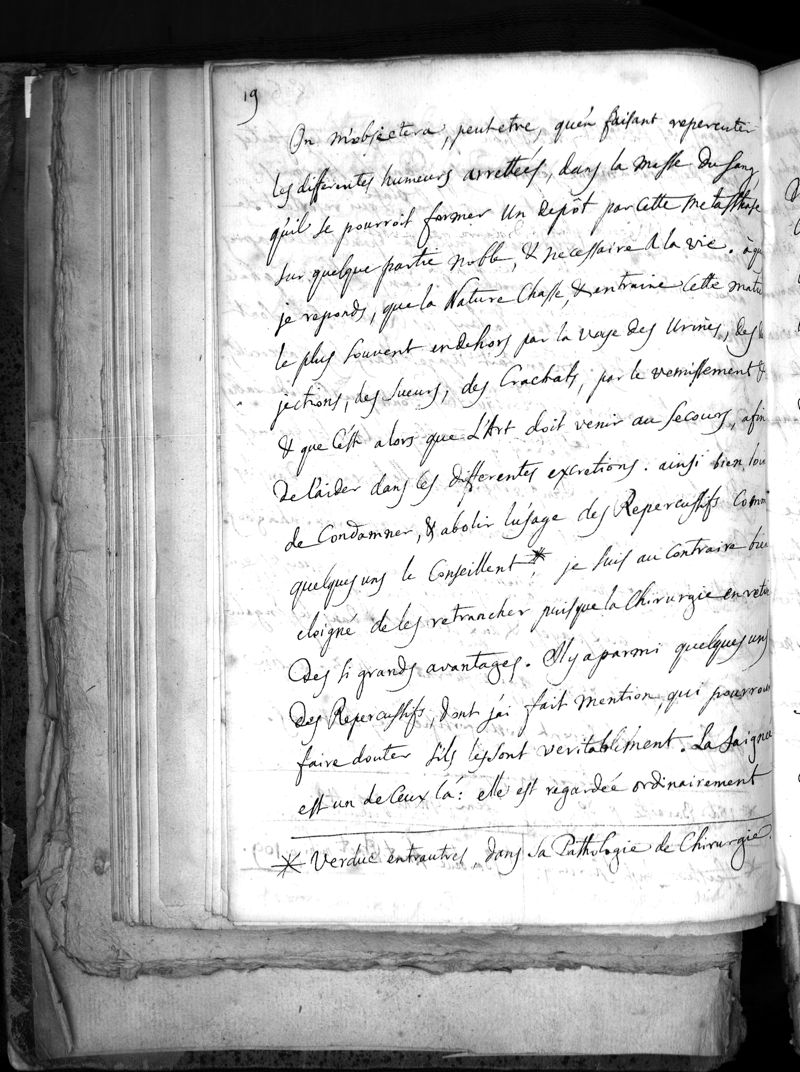 19
On m'objectera, peutetre, qu'en faisant repercuter
les differentes humeurs arrettées, dans la masse du sang,
qu'il se pourroit former un depôt par cette metastase
sur quelque partie noble, & necessaire a la vie. à qu
je reponds, que la Nature Chasse, & entraine cette mati
le plus souvent endehors par la voye des Urines, des d
jections, des sueurs, des Crachats, par le vomissement &
& que c'est alors que L'Art doit venir au secours, afin
de l'aider dans ces differentes excretions. ainsi bien loin
de Condamner, & abolir l'usage des Repercussifs Comm
quelques uns le Conseillent *, je suis au Contraire bien
eloigné de les retrancher puisque la Chirurgie en retire
des si grands avantages. Il y a parmi quelques uns
des Repercussifs, dont j'ai fait mention, qui pourroi
faire douter s'ils les sont veritablement. La saignée
est un de Ceux là: elle est regardée ordinairement
* Verduc entrautres dans sa Pathologie de Chirurgie.